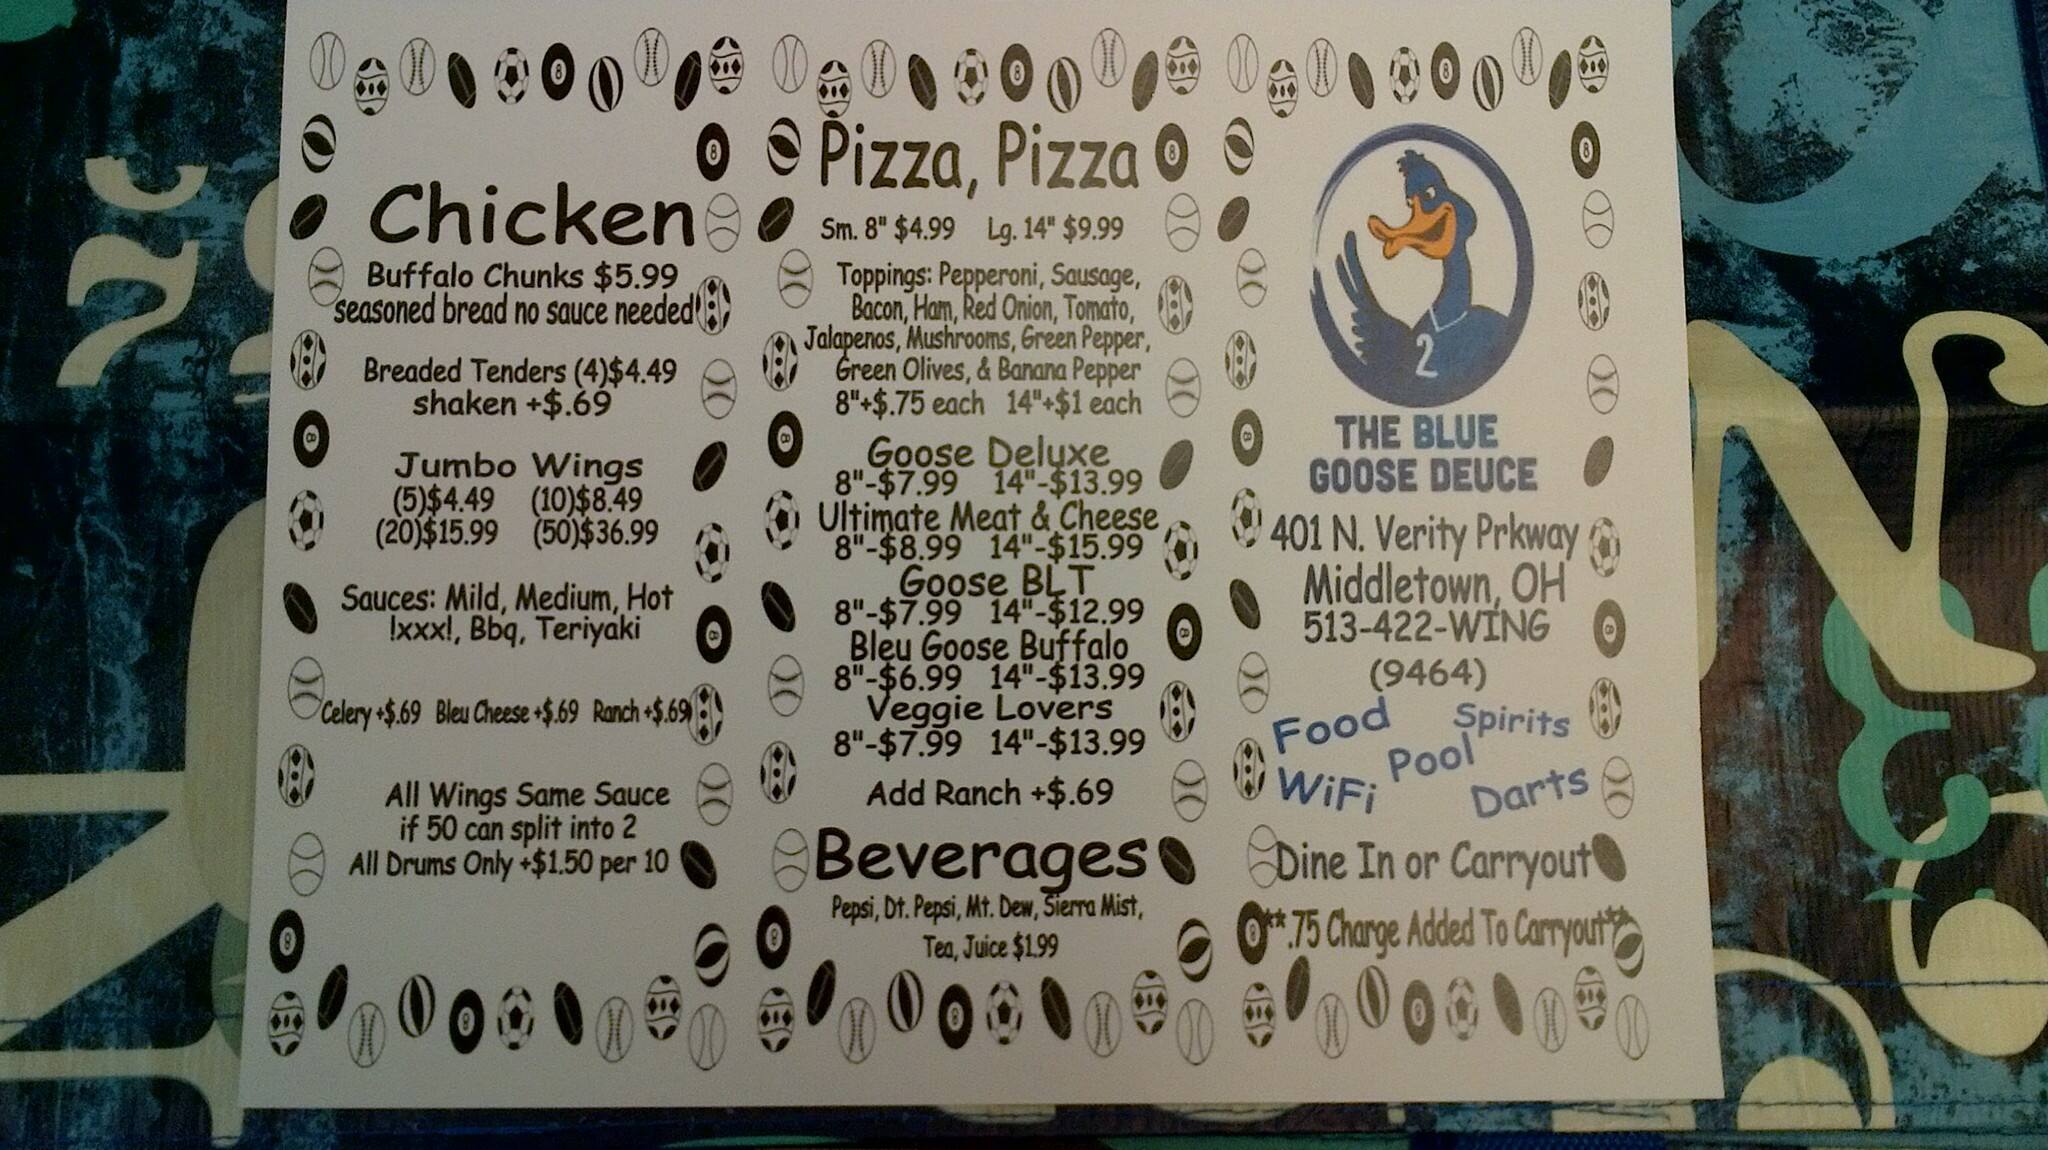 Chicken
Buffalo Chunks $5.99
seasoned bread no sauce needed
Breaded Tenders (4)$4.49
shaken +$.69
Jumbo Wings
(5)$4.49 (10)$8.49
(20)$15.99 (50)$36.99
Sauces: Mild, Medium, Hot
!xxx!, Bbq, Teriyaki
Celery +$.69 Bleu Cheese +$.69 Ranch +$.69
All Wings Same Sauce
if 50 can split into 2
All Drums Only +$1.50 per 10
Pizza, Pizza
Sm. 8" $4.99 Lg. 14" $9.99
Toppings: Pepperoni, Sausage,
Bacon, Ham, Red Onion, Tomato,
Jalapenos, Mushrooms, Green Pepper,
Green Olives, & Banana Pepper
8"+$.75 each 14"+$1 each
Goose Deluxe
8"-$7.99 14"-$13.99
Ultimate Meat & Cheese
8"-$8.99 14"-$15.99
Goose BLT
8"-$7.99 14"-$12.99
Bleu Goose Buffalo
8"-$6.99 14"-$13.99
Veggie Lovers
8"-$7.99 14"-$13.99
Add Ranch +$.69
Beverages
Pepsi, Dt. Pepsi, Mt. Dew, Sierra Mist,
Tea, Juice $1.99
2
THE BLUE
GOOSE DEUCE
401 N. Verity Prkway
Middletown, OH
513-422-WING
(9464)
Food Spirits
Pool
WiFi Darts
Dine In or Carryout
**.75 Charge Added To Carryout**